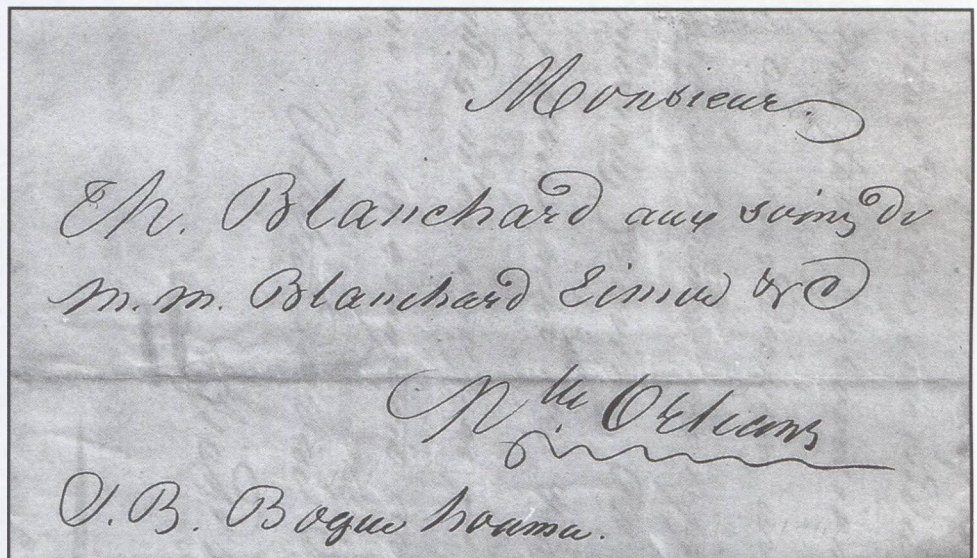 Monsieur
Th. Blanchard aux soins de
m. m. Blanchard & C
Nlle Orléans
S. B. Bogue houma.